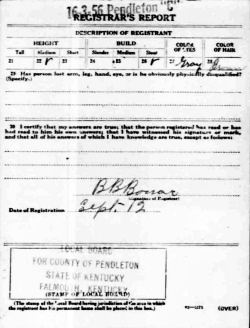 16-3-56 Pendleton "C"
REGISTRAR'S REPORT
DESCRIPTION OF REGISTRANT
HEIGHT BUILD COLOR OF EYES COLOR OF HAIR
Tall Medium Short Slender Medium Stout
21 22 23 24 25 26 27 Gray 28
29 Has person lost arm, leg, hand, eye, or is he obviously physically disqualified?
(Specify.)
30 I certify that my answers are true; that the person registered has read or has
had read to him his own answers; that I have witnessed his signature or mark,
and that all of his answers of which I have knowledge are true, except as follows:
(Signature of Registrar)
Date of Registration Sept. 12
LOCAL BOARD
FOR COUNTY OF PENDLETON
STATE OF KENTUCKY
FALMOUTH, KENTUCKY
(STAMP OF LOCAL BOARD)
(The stamp of the Local Board having jurisdiction of the area in which
the registrant has his permanent home shall be placed in this box.)
(OVER)